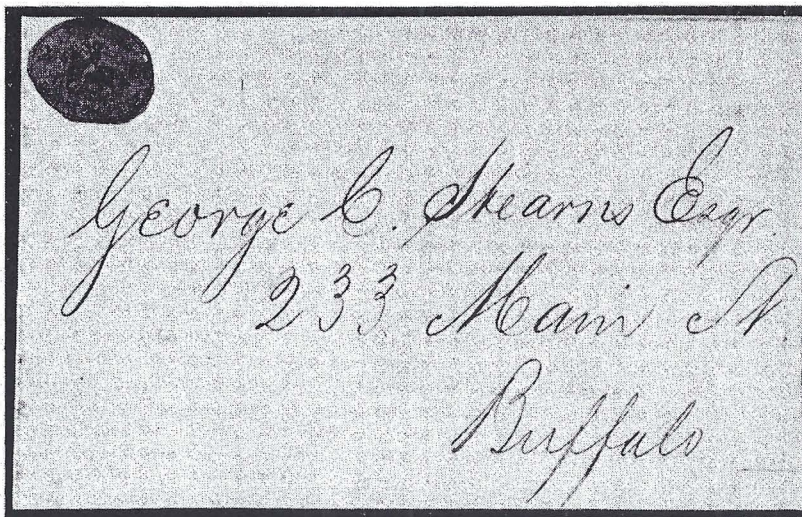 George C. Stearns Esqr.
233 Main St.
Buffalo